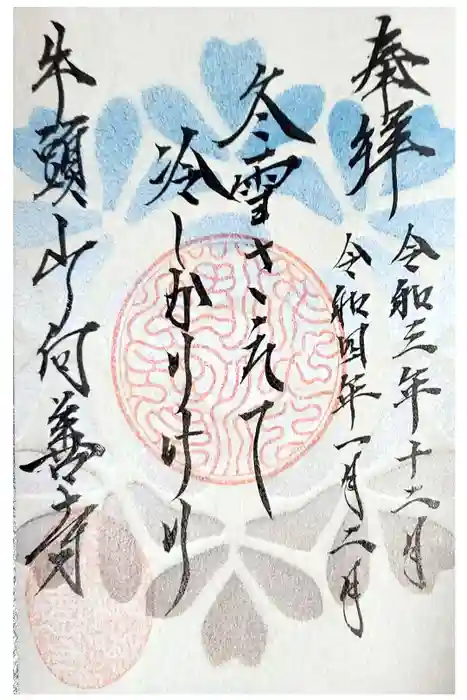 奉拝
令和三年十二月
令和四年一月二月
冬雪さえて
冷しかりけり
牛頭山弘善寺